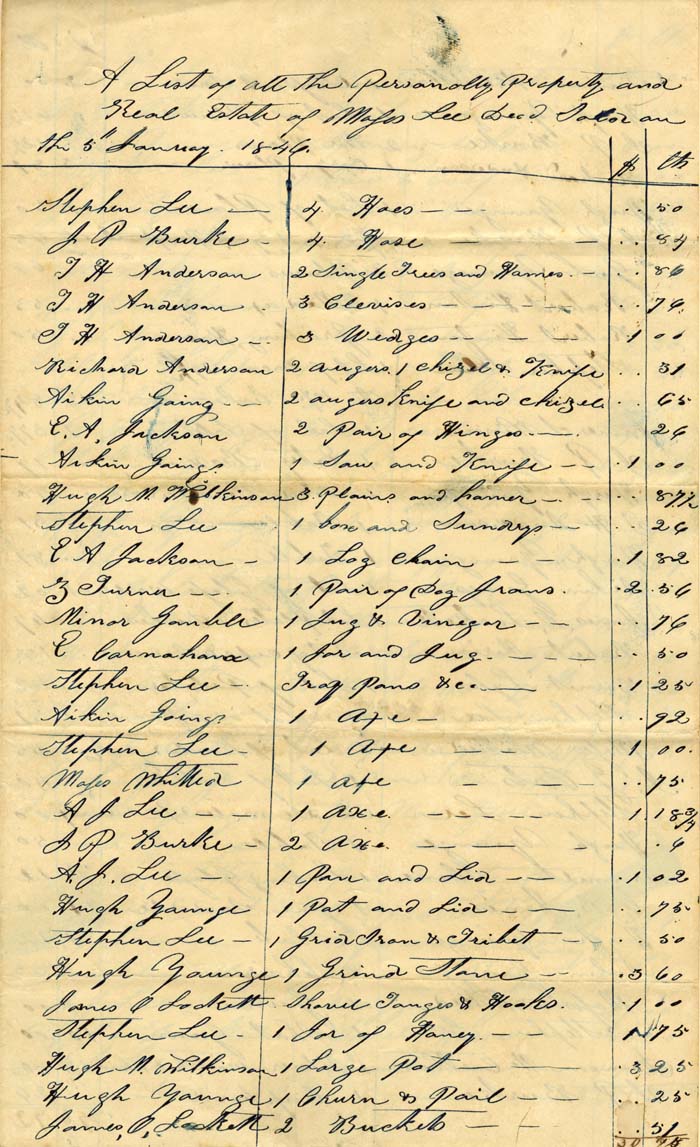 A List of all the Personally Property and
Real Estate of Moses Lee Decd Sold on
the 5th January. 1846.
$ cts
Stephen Lee 4 Hoes .. 50
J P Burke 4 Hose .. 84
T H Anderson 2 Single Trees and Hames .. 86
T H Anderson 3 Clevises .. 76
T H Anderson 3 Wedges 1 00
Richard Anderson 2 augers 1 chizel & Knife .. 31
Aikin Going 2 augers Knife and chizel .. 65
E. A. Jackson 2 Pair of Hinges .. 26
Aikin Goings 1 Saw and Knife 1 00
Hugh M. Wilkinson 3 Plains and hamer .. 87½
Stephen Lee 1 box and Sundrys .. 26
E A Jackson 1 Log Chain 1 82
Z Turner 1 Pair of Dog Irans. 2 56
Minor Gamble 1 Jug & Vinegar .. 76
E Carnahan 1 Jar and Jug .. 50
Stephen Lee Pans &c 1 25
Aikin Goings 1 Axe .. 92
Stephen Lee 1 Axe 1 00
Moses Whitted 1 axe .. 75
A J Lee 1 axe. 1 18¾
J P Burke 2 axe. . 6
A. J. Lee 1 Pan and Lid 1 02
Hugh Younge 1 Pot and Lid .. 75
Stephen Lee 1 Grid Iron & Tribet .. 50
Hugh Younge 1 Grind Stone 3 60
James O Lockett Shovel Tonges & Hooks. 1 00
Stephen Lee 1 Jar of Honey 1 75
Hugh M. Wilkinson 1 Large Pot 3 25
Hugh Younge 1 Churn & Pail .. 25
James, O, Lockett 2 Buckets .. 51
30